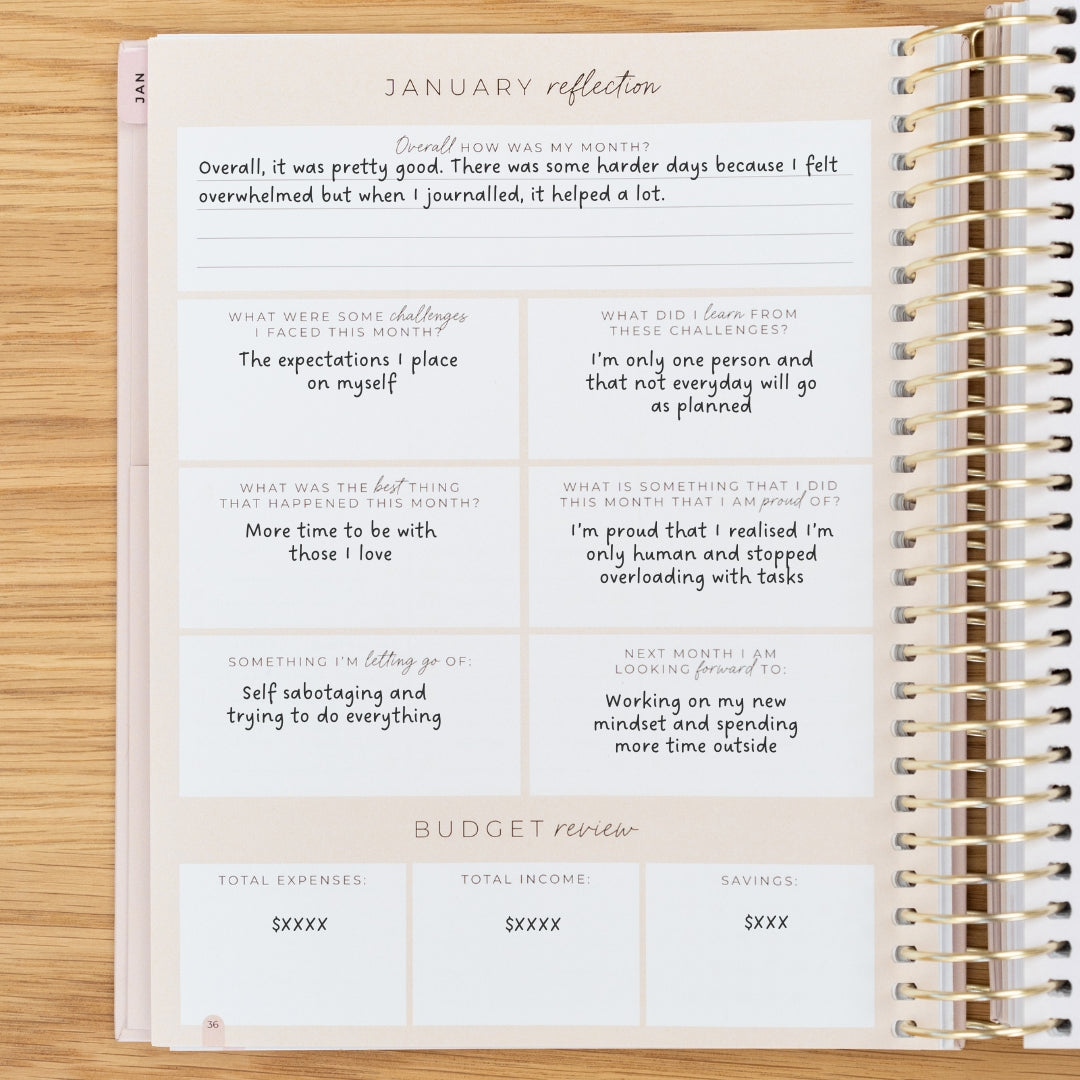 JAN
JANUARY reflection
Overall HOW WAS MY MONTH?
Overall, it was pretty good. There was some harder days because I felt
overwhelmed but when I journalled, it helped a lot.
WHAT WERE SOME challenges
I FACED THIS MONTH?
The expectations I place
on myself
WHAT DID I learn FROM
THESE CHALLENGES?
I'm only one person and
that not everyday will go
as planned
WHAT WAS THE best THING
THAT HAPPENED THIS MONTH?
More time to be with
those I love
WHAT IS SOMETHING THAT I DID
THIS MONTH THAT I AM proud OF?
I'm proud that I realised I'm
only human and stopped
overloading with tasks
SOMETHING I'M letting go OF:
Self sabotaging and
trying to do everything
NEXT MONTH I AM
LOOKING forward TO:
Working on my new
mindset and spending
more time outside
BUDGET review
TOTAL EXPENSES:
$XXXX
TOTAL INCOME:
$XXXX
SAVINGS:
$XXX
36